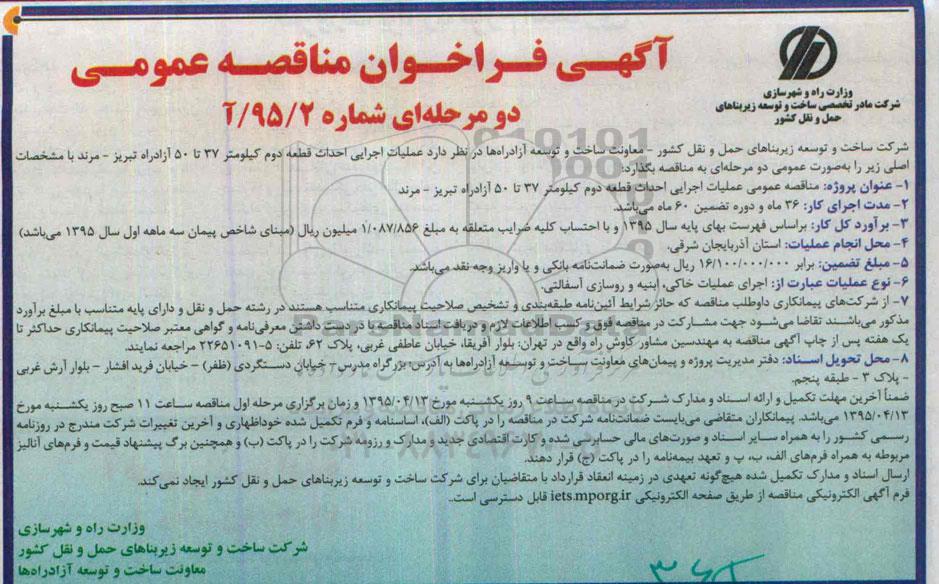 وزارت راه و شهرسازی
شرکت مادر تخصصی ساخت و توسعه زیربناهای
حمل و نقل کشور
آگهی فراخوان مناقصه عمومی
دو مرحله‌ای شماره ۹۵/۲/آ
شرکت ساخت و توسعه زیربناهای حمل و نقل کشور - معاونت ساخت و توسعه آزادراه‌ها در نظر دارد عملیات اجرایی احداث قطعه دوم کیلومتر ۳۷ تا ۵۰ آزادراه تبریز - مرند با مشخصات
اصلی زیر را به‌صورت عمومی دو مرحله‌ای به مناقصه بگذارد:
۱- عنوان پروژه: مناقصه عمومی عملیات اجرایی احداث قطعه دوم کیلومتر ۳۷ تا ۵۰ آزادراه تبریز - مرند
۲- مدت اجرای کار: ۳۶ ماه و دوره تضمین ۶۰ ماه می‌باشد.
۳- برآورد کل کار: براساس فهرست بهای پایه سال ۱۳۹۵ و با احتساب کلیه ضرایب متعلقه به مبلغ ۱/۰۸۷/۸۵۶ میلیون ریال (مبنای شاخص پیمان سه ماهه اول سال ۱۳۹۵ می‌باشد)
۴- محل انجام عملیات: استان آذربایجان شرقی.
۵- مبلغ تضمین: برابر ۱۶/۱۰۰/۰۰۰/۰۰۰ ریال به‌صورت ضمانت‌نامه بانکی و یا واریز وجه نقد می‌باشد.
۶- نوع عملیات عبارت از: اجرای عملیات خاکی، ابنیه و روسازی آسفالتی.
۷- از شرکت‌های پیمانکاری داوطلب مناقصه که حائز شرایط آئین‌نامه طبقه‌بندی و تشخیص صلاحیت پیمانکاری متناسب هستند در رشته حمل و نقل و دارای پایه متناسب با مبلغ برآورد
مذکور می‌باشند تقاضا می‌شود جهت مشارکت در مناقصه فوق و کسب اطلاعات لازم و دریافت اسناد مناقصه با در دست داشتن معرفی‌نامه و گواهی معتبر صلاحیت پیمانکاری حداکثر تا
یک هفته پس از چاپ آگهی مناقصه به مهندسین مشاور کاوش راه واقع در تهران، بلوار آفریقا، خیابان عاطفی غربی، پلاک ۶۲، تلفن: ۵-۲۲۶۵۱۰۹۱ مراجعه نمایند.
۸- محل تحویل اسناد: دفتر مدیریت پروژه و پیمان‌های معاونت ساخت و توسعه آزادراه‌ها به آدرس: بزرگراه مدرس - خیابان دستگردی (ظفر) - خیابان فرید افشار - بلوار آرش غربی
- پلاک ۳ - طبقه پنجم.
ضمناً آخرین مهلت تکمیل و ارائه اسناد و مدارک شرکت در مناقصه ساعت ۹ روز یکشنبه مورخ ۱۳۹۵/۰۴/۱۳ و زمان برگزاری مرحله اول مناقصه ساعت ۱۱ صبح روز یکشنبه مورخ
۱۳۹۵/۰۴/۱۳ می‌باشد. پیمانکاران متقاضی می‌بایست ضمانت‌نامه شرکت در مناقصه را در پاکت (الف)، اساسنامه و فرم تکمیل شده خوداظهاری و آخرین تغییرات شرکت مندرج در روزنامه
رسمی کشور را به همراه سایر اسناد و صورت‌های مالی حسابرسی شده و کارت اقتصادی جدید و مدارک و رزومه شرکت را در پاکت (ب) و همچنین برگ پیشنهاد قیمت و فرم‌های آنالیز
مربوطه به همراه فرم‌های الف، ب، پ و تعهد بیمه‌نامه را در پاکت (ج) قرار دهند.
ارسال اسناد و مدارک تکمیل شده هیچ‌گونه تعهدی در زمینه انعقاد قرارداد با متقاضیان برای شرکت ساخت و توسعه زیربناهای حمل و نقل کشور ایجاد نمی‌کند.
فرم آگهی الکترونیکی مناقصه از طریق صفحه الکترونیکی iets.mporg.ir قابل دسترسی است.
وزارت راه و شهرسازی
شرکت ساخت و توسعه زیربناهای حمل و نقل کشور
معاونت ساخت و توسعه آزادراه‌ها